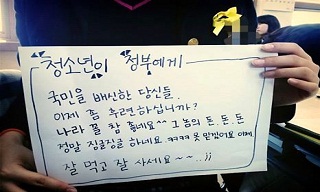 청소년이 정부에게
국민을 배신한 당신들.
이제 좀 후련하십니까?
나라 꼴 참 좋네요^^ 그 놈의 돈.돈.돈
정말 징글징글 하네요 ㅋㅋㅋㅋ 못 믿겠어요 이제.
잘 먹고 잘 사세요~~..;;